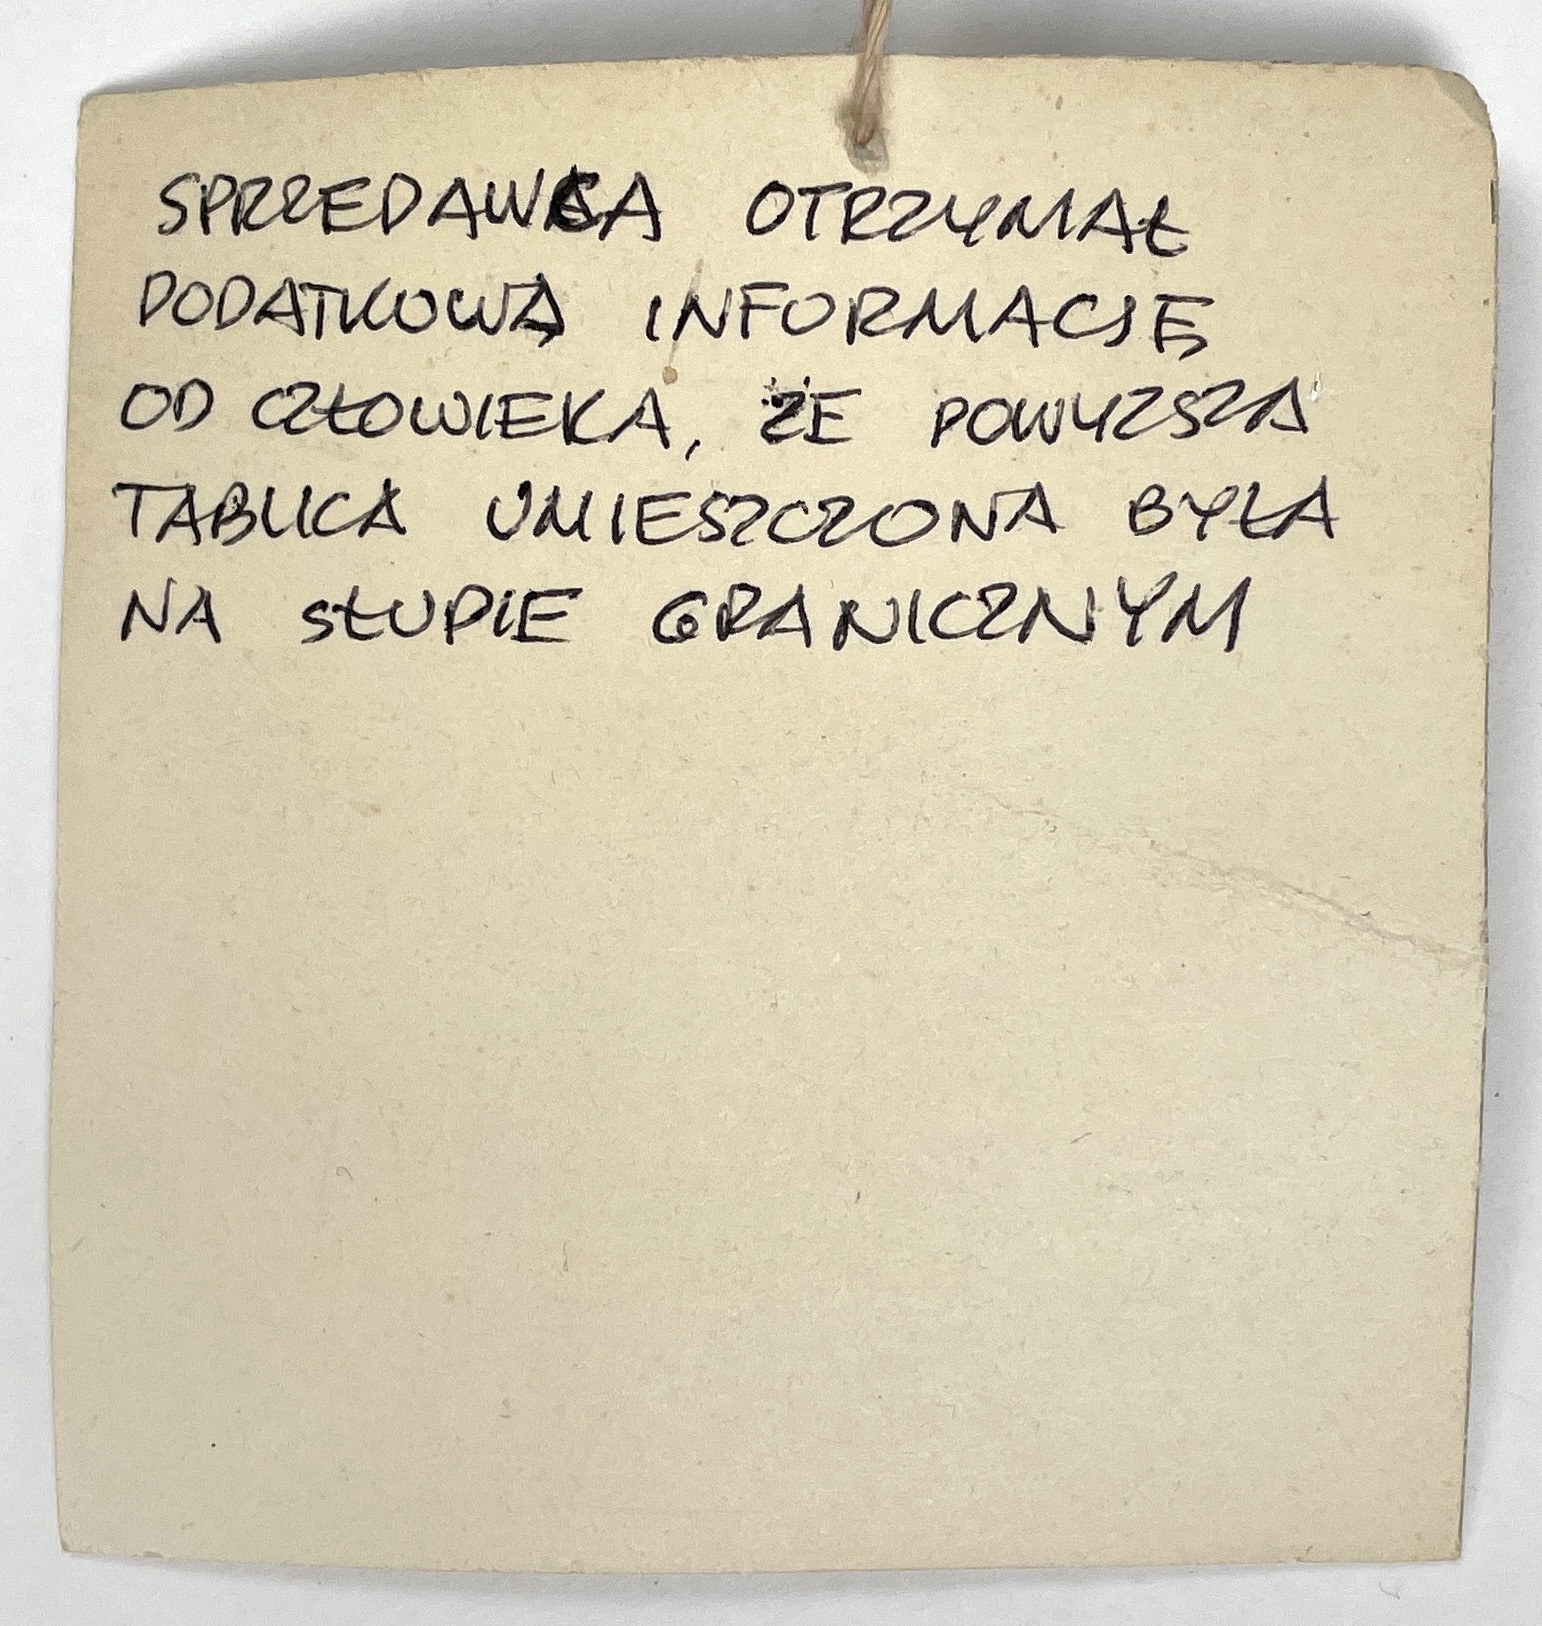 SPRZEDAWCA OTRZYMAŁ
DODATKOWĄ INFORMACJĘ
OD CZŁOWIEKA, ŻE POWYZSZA
TABLICA UMIESZCZONA BYŁA
NA SŁUPIE GRANICZNYM